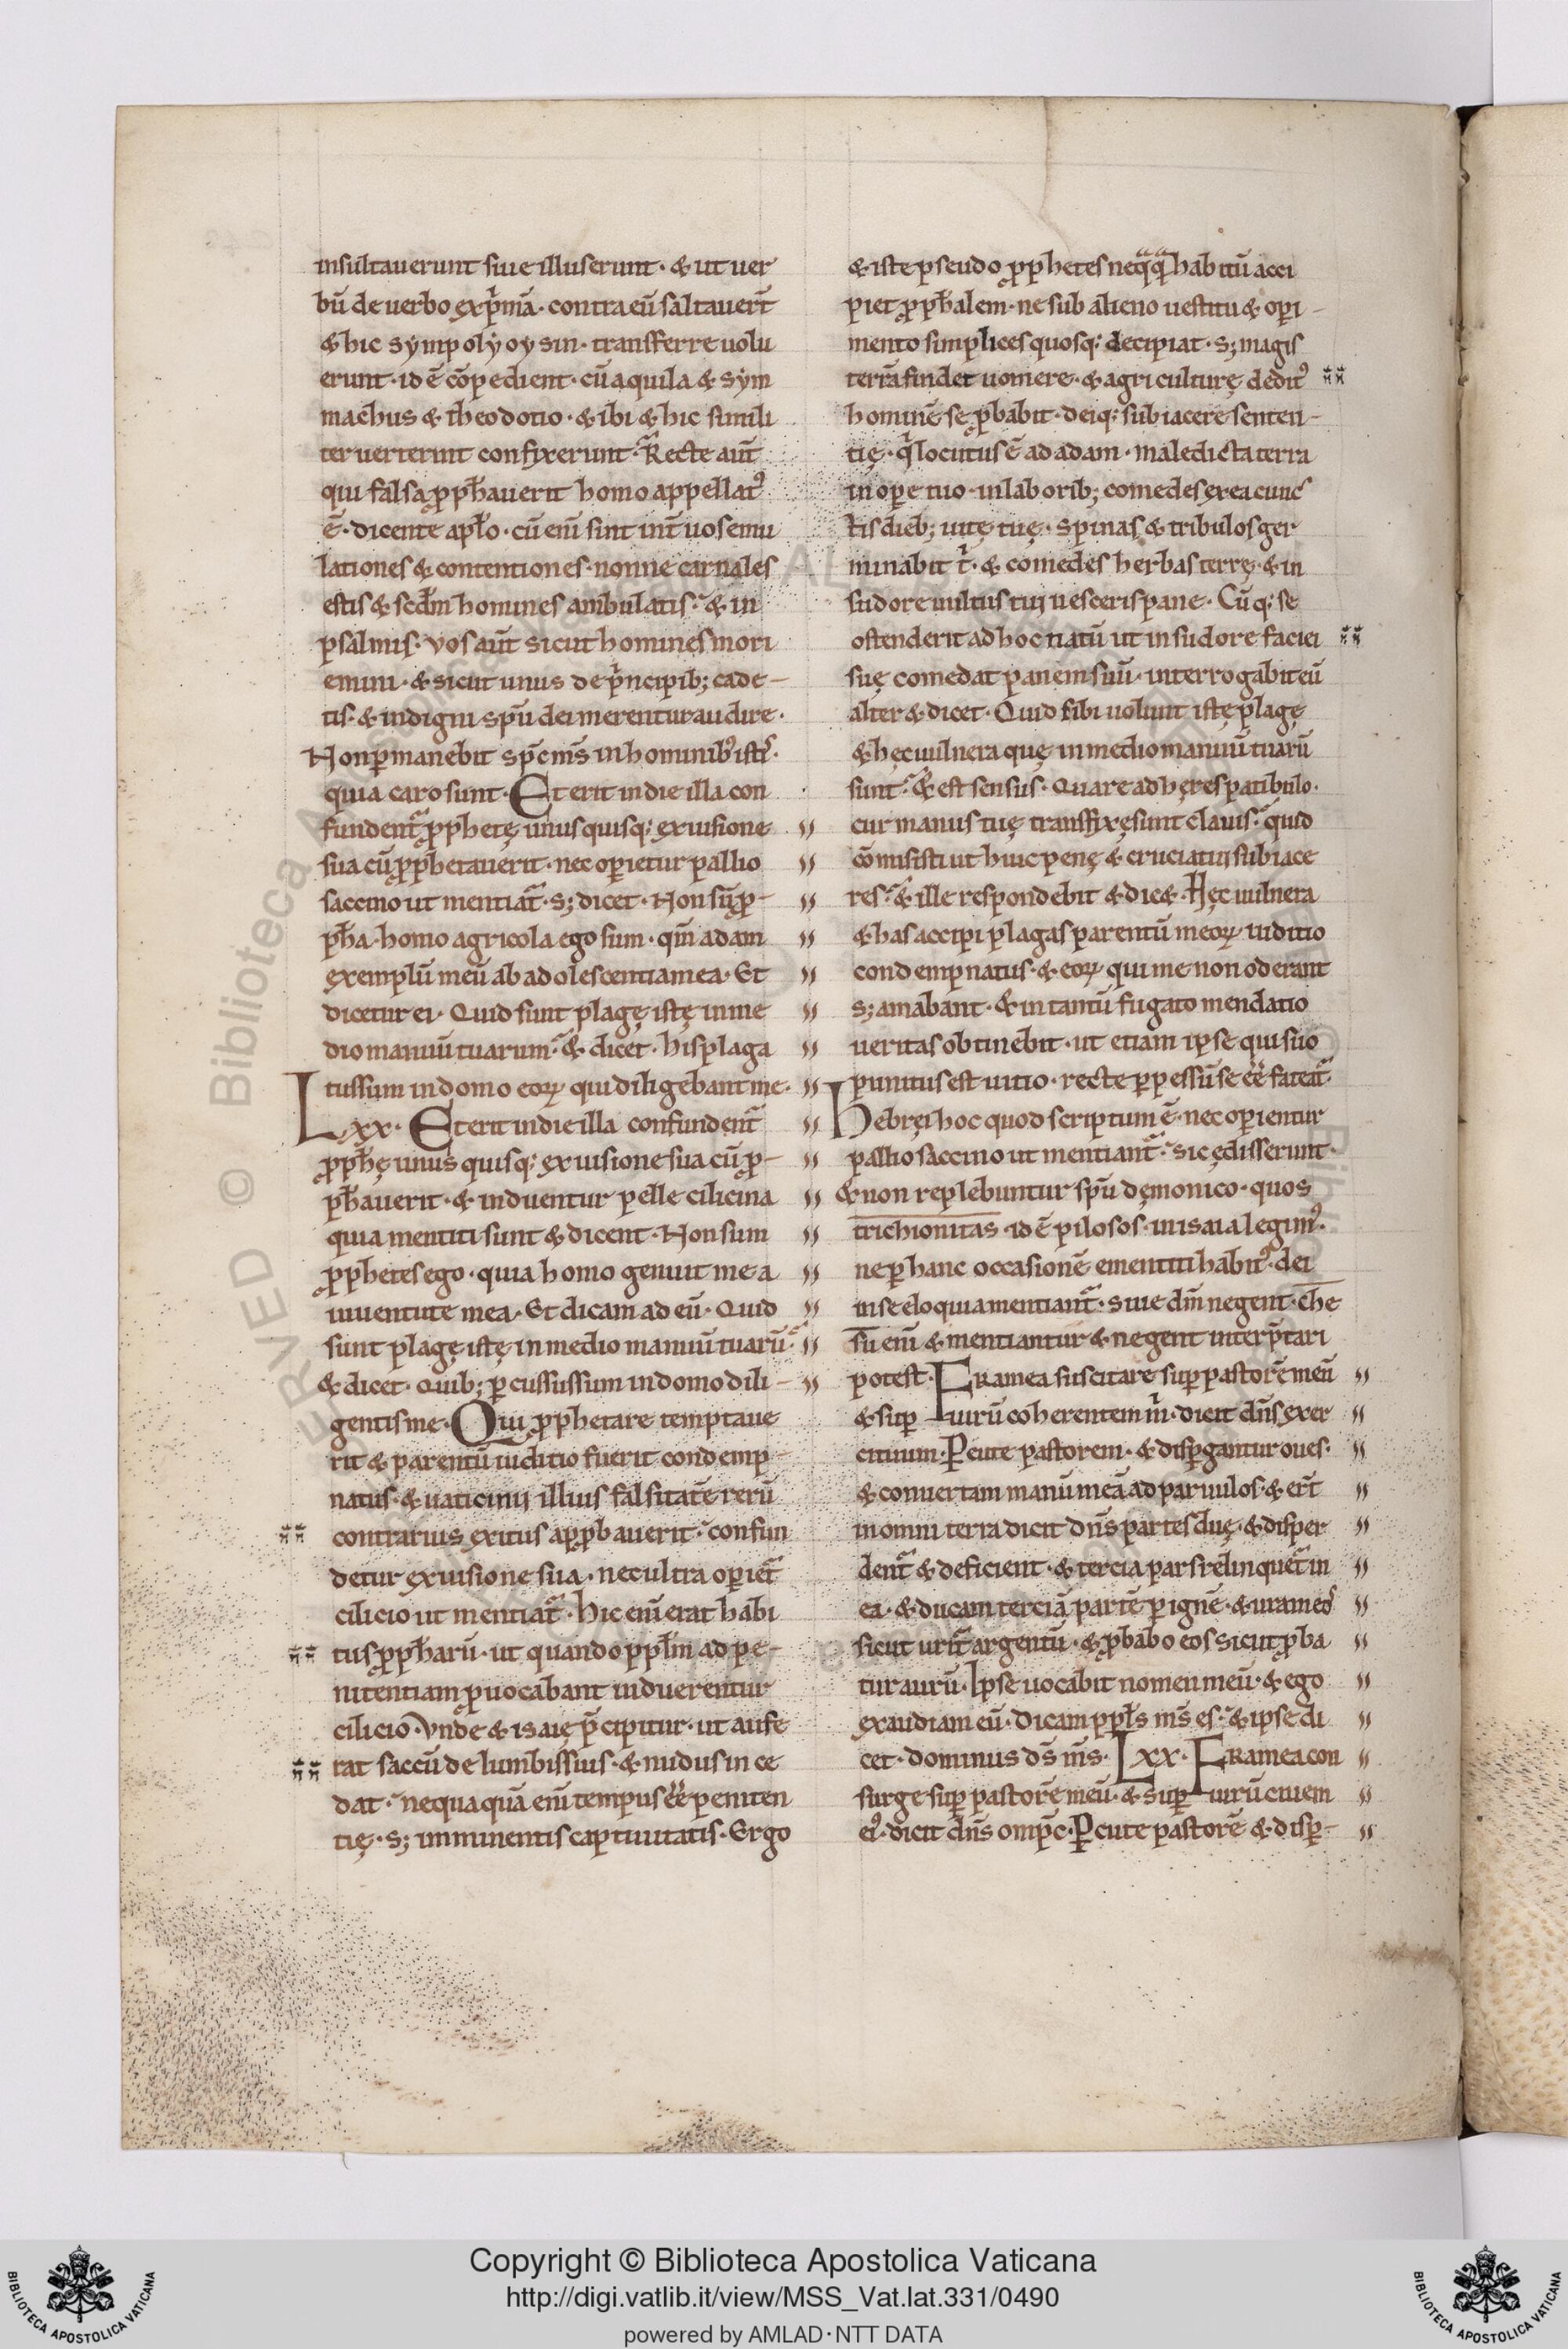 insultauerunt siue illuserunt· & ut uer
bū de uerbo expͥmā· contra eū saltauert̄
& hic sympolyoysin· transferre uolu
erunt· id ē cōpedient· cū aquila & sym
machus & theodotio· & ibi & hic simili
ter uerterunt confixerunt· Recte aut̄
qui falsa ꝓph̄auerit homo appellatꝰ
ē· dicente apl̄o· cū eni͂ sint int̄ uos emu
lationes & contentiones· nonne carnales
estis & scd̄m homines ambulatis· & in
psalmis· vos aut̄ sicut homines mori
emini· & sicut unus de pͥncipib; cade-
tis· & indigni spū dei merentur audire·
Non ꝑmanebit spc̄ ms̄ in hominibꝰ istiˢ·
quia caro sunt· Et erit in die illa con
fundentᷓ ꝓphetę unus quisq; ex uisione
sua cū ꝓphetauerit· nec oꝑietur pallio
saccino ut mentiatᷓ· s; dicet· Non sū ꝓ-
ph̄a· homo agricola ego sum· qm̄ adam
exemplū meū ab adolescentia mea· Et
dicetur ei· Quid sunt plagę istę in me
dio manuū tuarum· & dicet· his plaga
tus sum in domo eoꝝ qui diligebant me·
Lxx· Et erit in die illa confundentᷓ
ꝓph̄ę unus quisq; ex uisione sua cū ꝓ-
ph̄auerit· & induentur pelle cilicina
quia mentiti sunt & dicent· Non sum
ꝓphetes ego· quia homo genuit me a
iuuentute mea· Et dicam ad eū· Quid
sunt plagę istę in medio manuū tuarū·
& dicet· Quib; ꝑcussus sum in domo dili-
gentis me· Qui ꝓphetare temptaue
rit & parentū iuditio fuerit condemp-
natus· & uaticinij illius falsitatē rerū
contrarius exitus apꝓbauerit· confun
detur ex uisione sua· nec ultra oꝑietᷓ
cilicio ut mentiatᷓ· Hic eni͂ erat habi
tus ꝓph̄arū· ut quando ppl̄m ad pe-
nitentiam ꝓuocabant induerentur
cilicio· Vnde & isaię p̄cipitur· ut aufe
rat saccū de lumbis suis· & nudus ince
dat· nequaquā eni͂ tempus eē peniten
tię· s; imminentis captiuitatis· Ergo
& iste pseudo ꝓphetes neqᷓqᷓ habitū acci
piet ꝓph̄alem· ne sub alieno uestitu & oꝑi-
mento simplices quosq; decipiat· s; magis
terrā findet uomere· & agriculturę deditꝰ
hominē se ꝓbabit· deiq; subiacere senten-
tię· qͥ locutus ē ad adam· maledicta terra
in oꝑe tuo· in laborib; comedes ex ea cunc
tis dieb; uitę tuę· Spinas & tribulos ger
minabit tͥ· & comedes herbas terrę· & in
sudore uultus tui uesceris pane· Cūq; se
ostenderit ad hoc natū ut in sudore faciei
suę comedat panem suū· interrogabit eū
alter & dicet· Quid sibi uolunt istę plagę
& hęc uulnera quę in medio manuū tuarū
sunt· & est sensus· Quare adhęres patibulo·
cur manus tuę transfixę sunt clauis· quid
cōmisisti ut huic penę & cruciatui subiace
res· & ille respondebit & dic&· Hęc uulnera
& has accipi plagas parentū meoꝝ iuditio
condempnatus· & eoꝝ qui me non oderant
s; amabant· & in tantū fugato mendatio
ueritas obtinebit· ut etiam ipse qui suo
punitus est uitio· recte ꝑpessū se eē fateatᷓ·
Hebręi hoc quod scriptum ē· nec oꝑientur
pallio saccino ut mentiantᷓ· sic ędisserunt·
& non replebuntur spū dęmonico· quos
trichionitas id ē pilosos· in isaia legimꝰ·
ne ꝑ hanc occasionē ementiti habitꝰ· dei
in se eloquia mentiantᷓ· siue dm̄ negent· che
su eni͂ & mentiantur & negent interp̄tari
potest· Framea suscitare suꝑ pastorē meū
& suꝑ uirū coherentem mͥ· dicit dn̄s exer
cituum· Ꝑcute pastorem· & disꝑgantur oues·
& conuertam manū meā ad paruulos· & ert̄
in omni terra dicit dn̄s partes duę· & disper
dentᷓ & deficient· & tercia pars relinquetᷓ in
ea· & ducam terciā partē ꝑ ignē· & uram eos
sicut urit̄ argentū· & ꝓbabo eos sicut ꝓba
tur aurū· Ipse uocabit nomen meū· & ego
exaudiam eū· Dicam ppl̄s ms̄ es· & ipse di
cet· dominus ds̄ ms̄· Lxx· Framea con
surge suꝑ pastorē meū· & suꝑ uirū ciuem
eiꝰ· dicit dn̄s omp̄c· Ꝑcute pastorē & disꝑ-
Copyright © Biblioteca Apostolica Vaticana
http://digi.vatlib.it/view/MSS_Vat.lat.331/0490
powered by AMLAD·NTT DATA
BIBLIOTECA APOSTOLICA VATICANA
BIBLIOTECA APOSTOLICA VATICANA